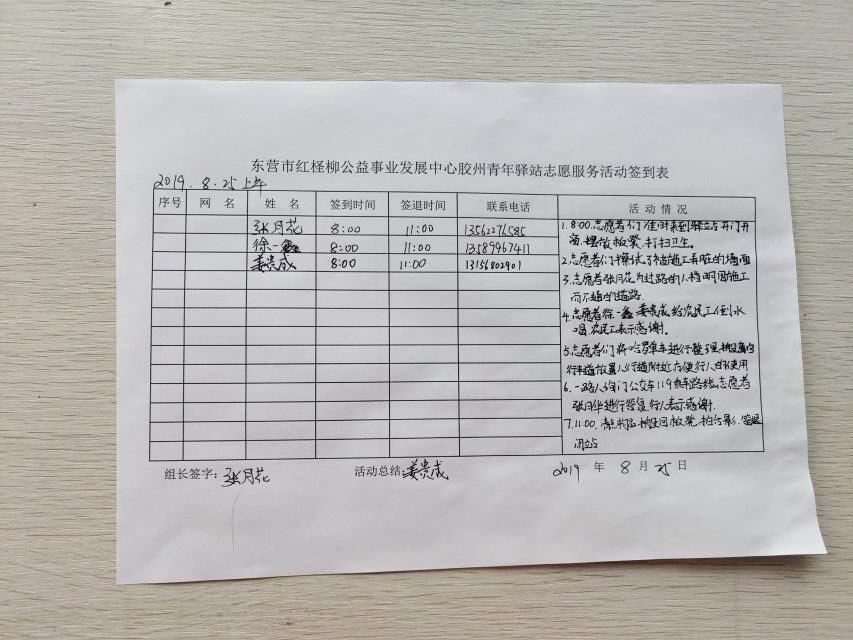 东营市红柽柳公益事业发展中心胶州青年驿站志愿服务活动签到表
2019.8.25上午
序号 网 名 姓 名 签到时间 签退时间 联系电话 活 动 情 况
张月花 8:00 11:00 13562276585
徐一鑫 8:00 11:00 13589967411
姜贵成 8:00 11:00 13156802901
1.8:00.志愿者们准时来到驿站开门开
窗.摆放板凳.打扫卫生。
2.志愿者们擦拭了被施工弄脏的墙面
3.志愿者张月花为过路的人指明因施工
而不通的道路.
4.志愿者徐一鑫 姜贵成给农民工倒水
喝.农民工表示感谢.
5.志愿者们将哈罗单车进行整理.
行车道放置人行道附近方便行人的使用
6.一路人询问公交车119乘车路线.志愿者
张月华进行答复.行人表示感谢.
7.11:00.清点物品.搬回板凳.拍合影.签退
闭站
组长签字:张月花 活动总结:姜贵成 2019 年 8 月 25 日